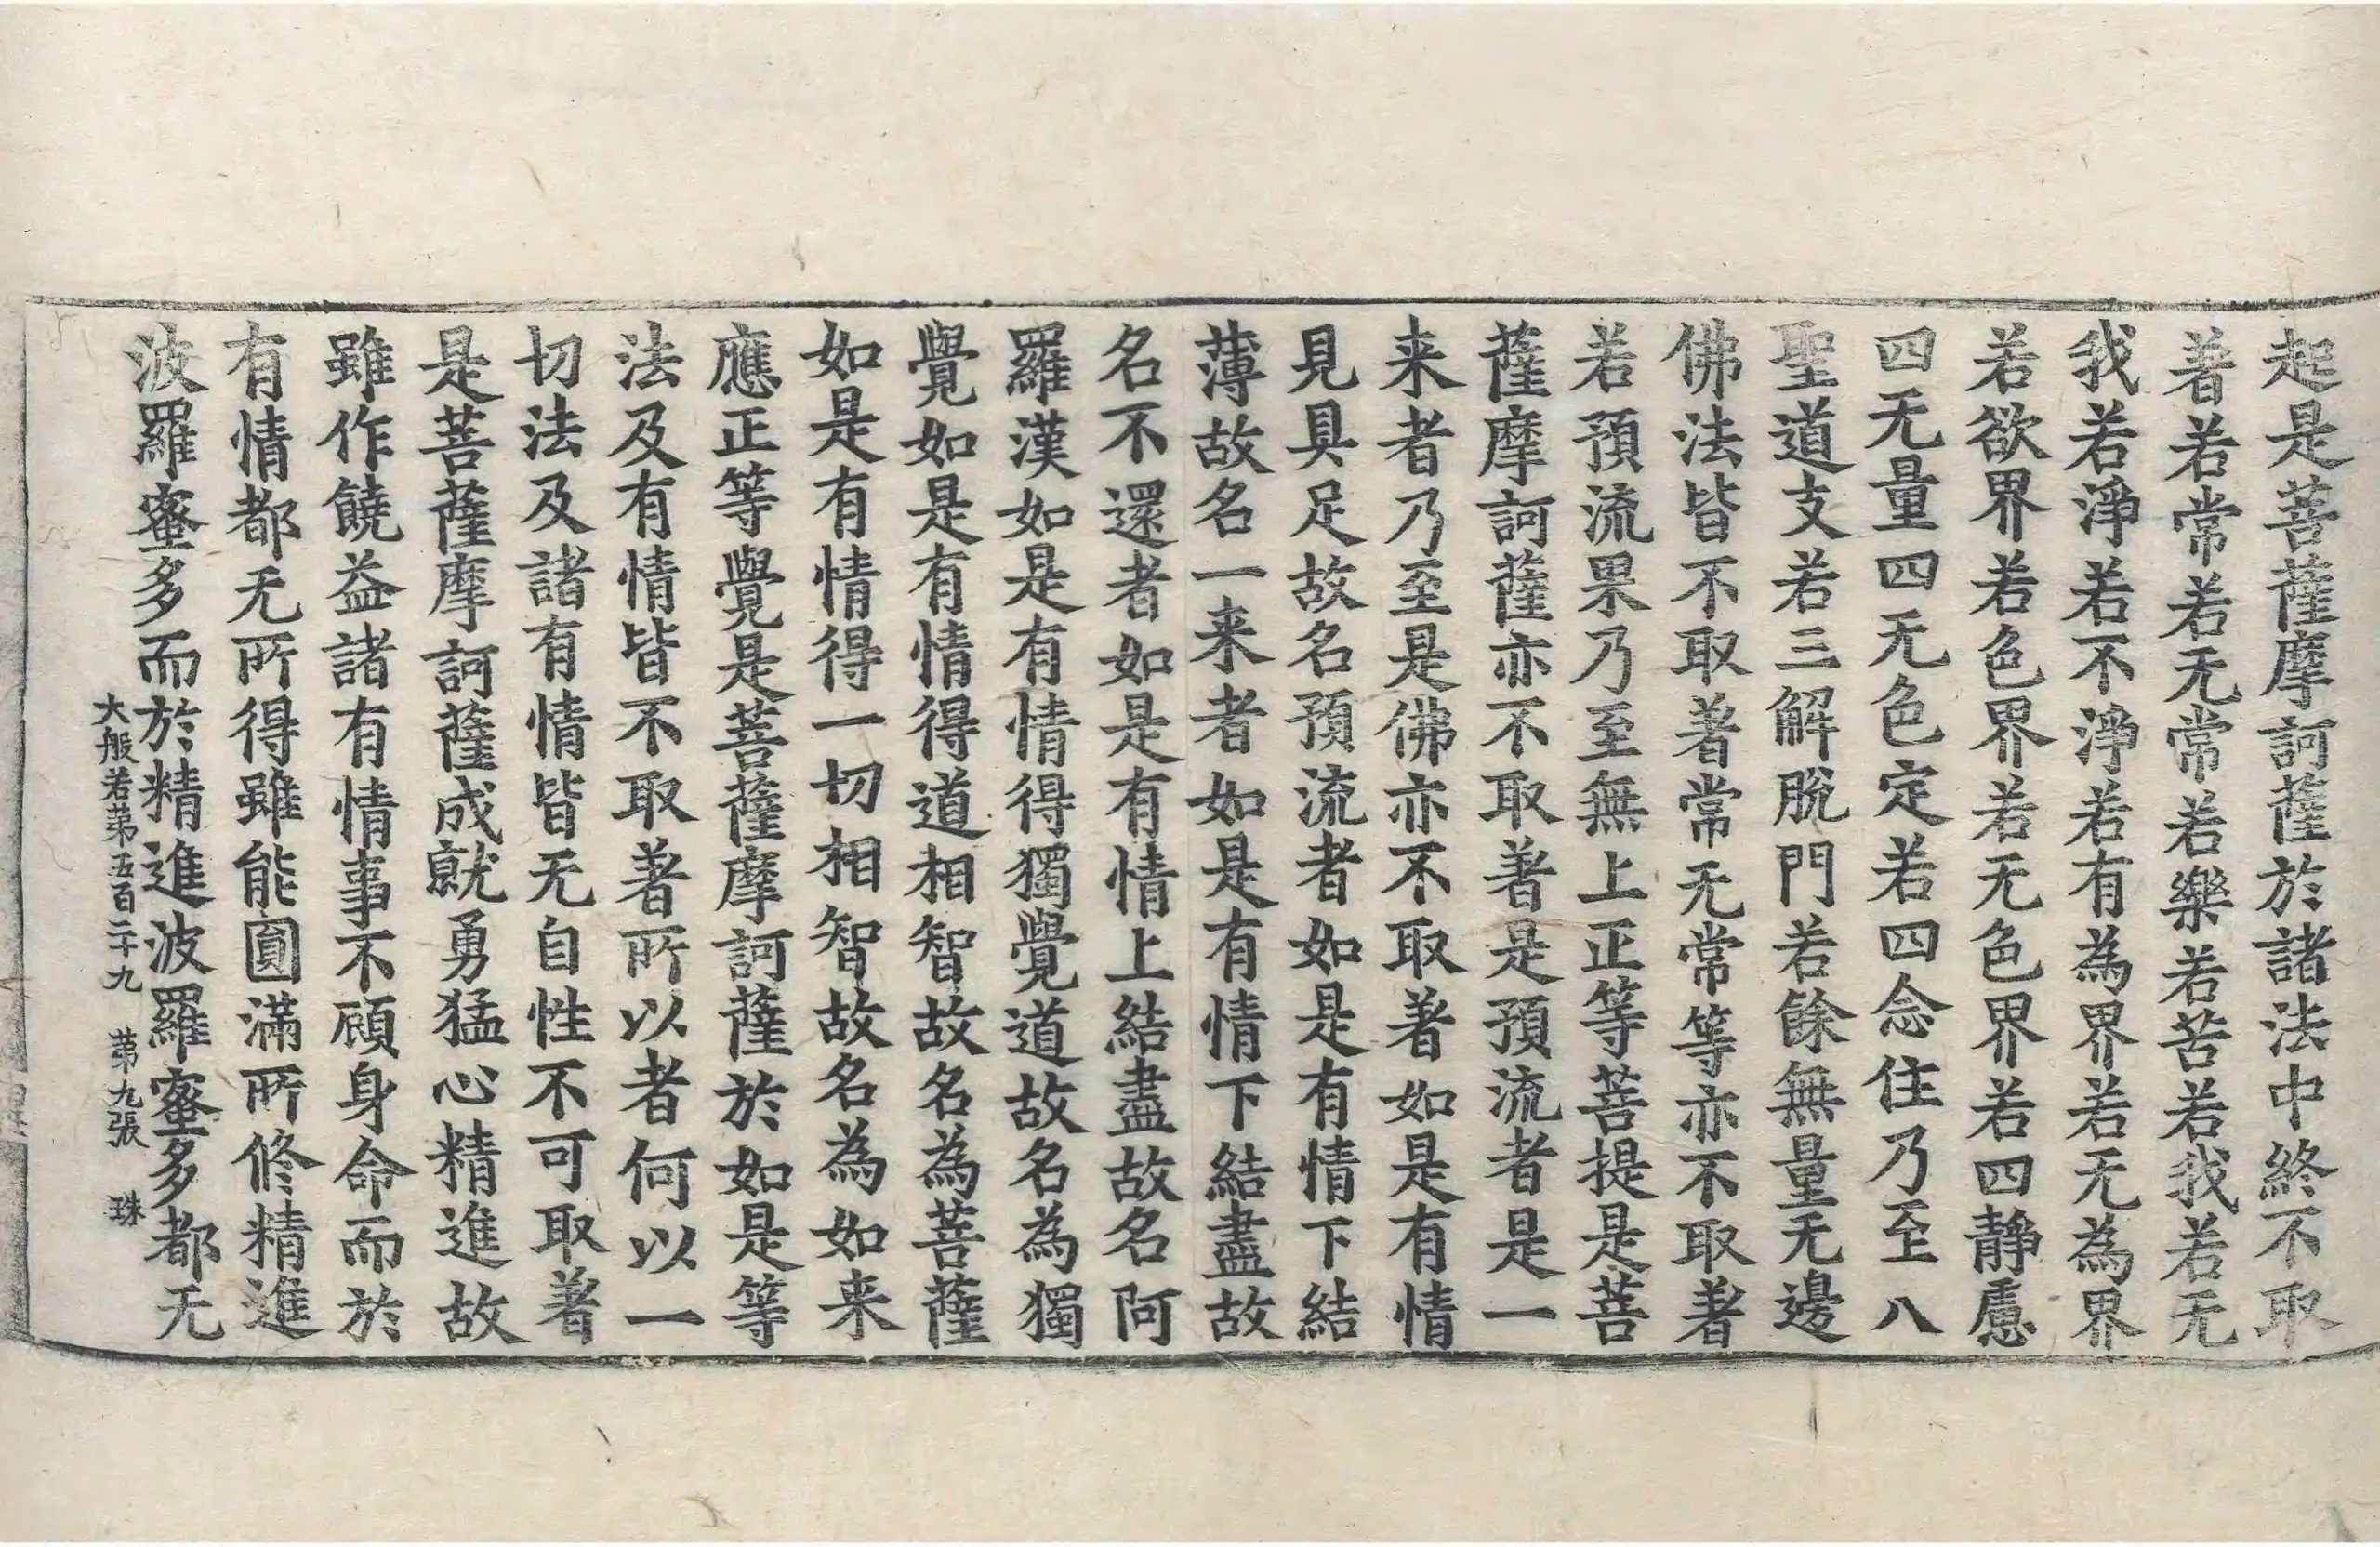 起是菩薩摩訶薩於諸法中終不取
著若常若无常若樂若苦若我若无
我若淨若不淨若有為界若无為界
若欲界若色界若无色界若四靜慮
四无量四无色定若四念住乃至八
聖道支若三解脫門若餘無量无邊
佛法皆不取著常无常等亦不取著
若預流果乃至無上正等菩提是菩
薩摩訶薩亦不取著是預流者是一
来者乃至是佛亦不取著如是有情
見具足故名預流者如是有情下結
薄故名一来者如是有情下結盡故
名不還者如是有情上結盡故名阿
羅漢如是有情得獨覺道故名為獨
覺如是有情得道相智故名為菩薩
如是有情得一切相智故名為如来
應正等覺是菩薩摩訶薩於如是等
法及有情皆不取著所以者何以一
切法及諸有情皆无自性不可取著
是菩薩摩訶薩成就勇猛心精進故
雖作饒益諸有情事不顧身命而於
有情都无所得雖能圓滿所修精進
波羅蜜多而於精進波羅蜜多都无
大般若第五百二十九 第九張 珠